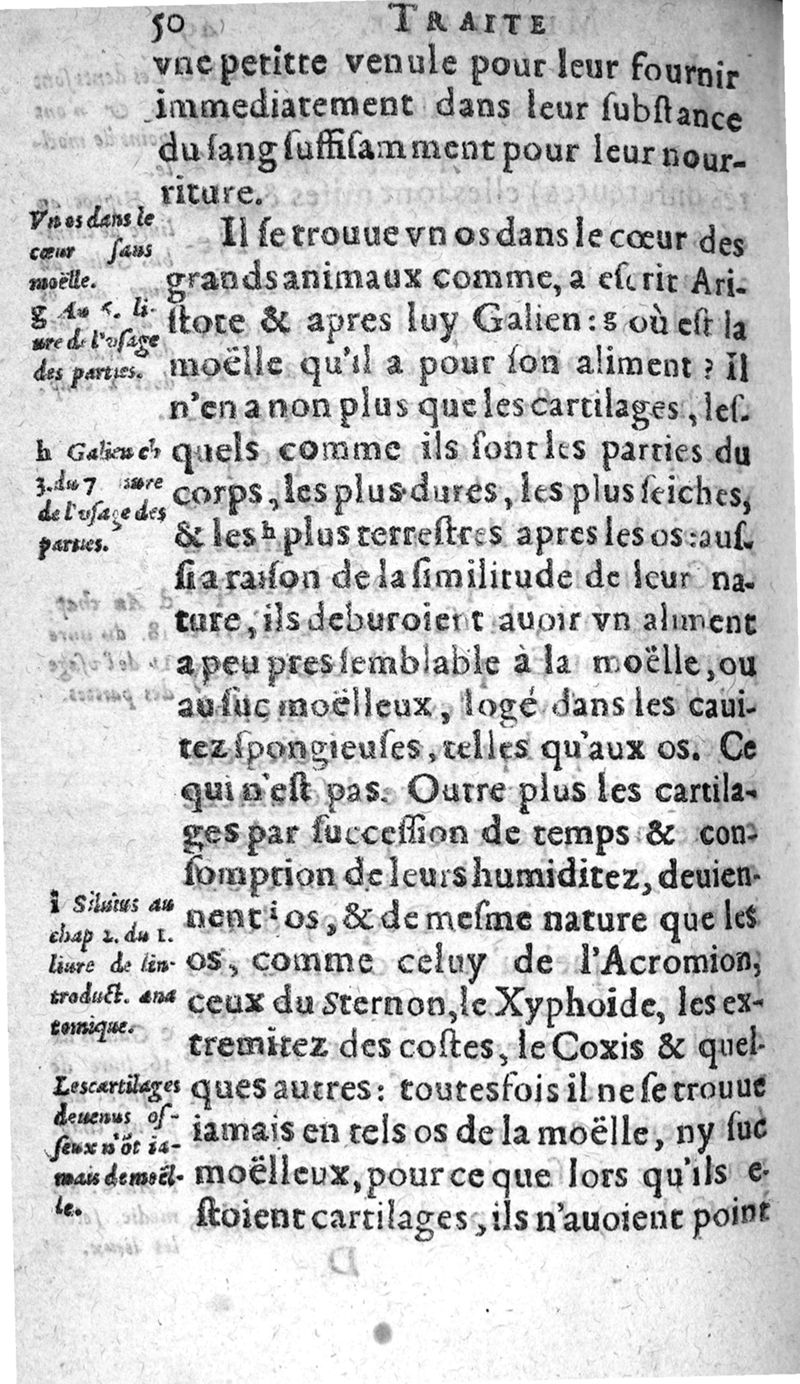 50 TRAITE
vne petitte venule pour leur fournir
immediatement dans leur ſubſtance
du ſang ſuffiſamment pour leur nour-
riture.
Vn os dans le
cœur ſans
moëlle.
g Au 5. li-
ure de l'vſage
des parties.
Il ſe trouue vn os dans le cœur des
grands animaux comme, a eſcrit Ari-
ſtote & apres luy Galien: g où eſt la
moëlle qu'il a pour ſon aliment? Il
n'en a non plus que les cartilages, leſ-
h Galien ch
3. du 7 liure
de l'vſage des
parties.
quels comme ils ſont les parties du
corps, les plus dures, les plus ſeiches,
& les h plus terreſtres apres les os: auſ-
ſi a raiſon de la ſimilitude de leur na-
ture, ils deburoient auoir vn aliment
a peu pres ſemblable à la moëlle, ou
au ſuc moëlleux, logé dans les caui-
tez ſpongieuſes, telles qu'aux os. Ce
qui n'eſt pas. Outre plus les cartila-
ges par ſucceſſion de temps & con-
ſomption de leurs humiditez, deuien-
i Siluius au
chap 2. du 1.
liure de l'in-
troduct. ana
tomique.
nent i os, & de meſme nature que les
os, comme celuy de l'Acromion,
ceux du Sternon, le Xyphoide, les ex-
tremitez des coſtes, le Coxis & quel-
Les cartilages
deuenus oſ-
ſeux n'õt ia-
mais de moël-
le.
ques autres: toutesfois il ne ſe trouue
iamais en tels os de la moëlle, ny ſuc
moëlleux, pour ce que lors qu'ils e-
ſtoient cartilages, ils n'auoient point